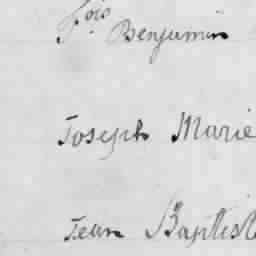 fois Benjamin
Joseph Marie
Jean Baptist